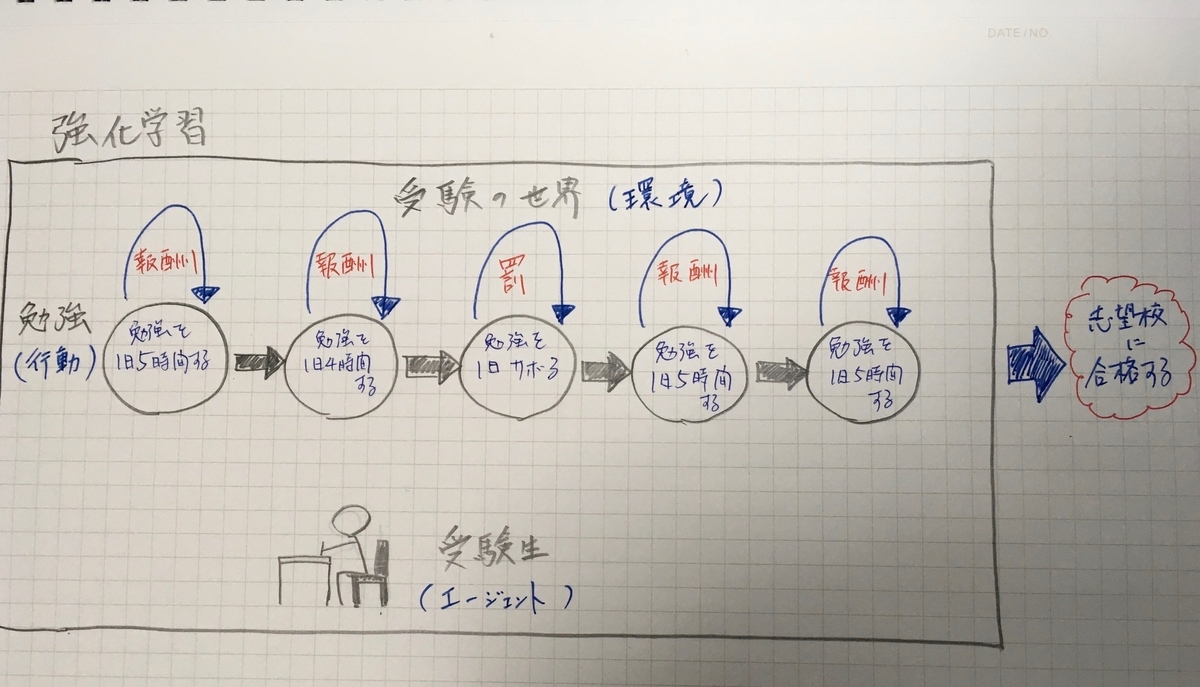 DATE/NO.
強化学習
受験の世界 (環境)
報酬
報酬
罰
報酬
報酬
勉強
(行動)
勉強を
1日5時間する
勉強を
1日4時間
する
勉強を
1日サボる
勉強を
1日5時間
する
勉強を
1日5時間
する
志望校
に
合格する
受験生
(エージェント)